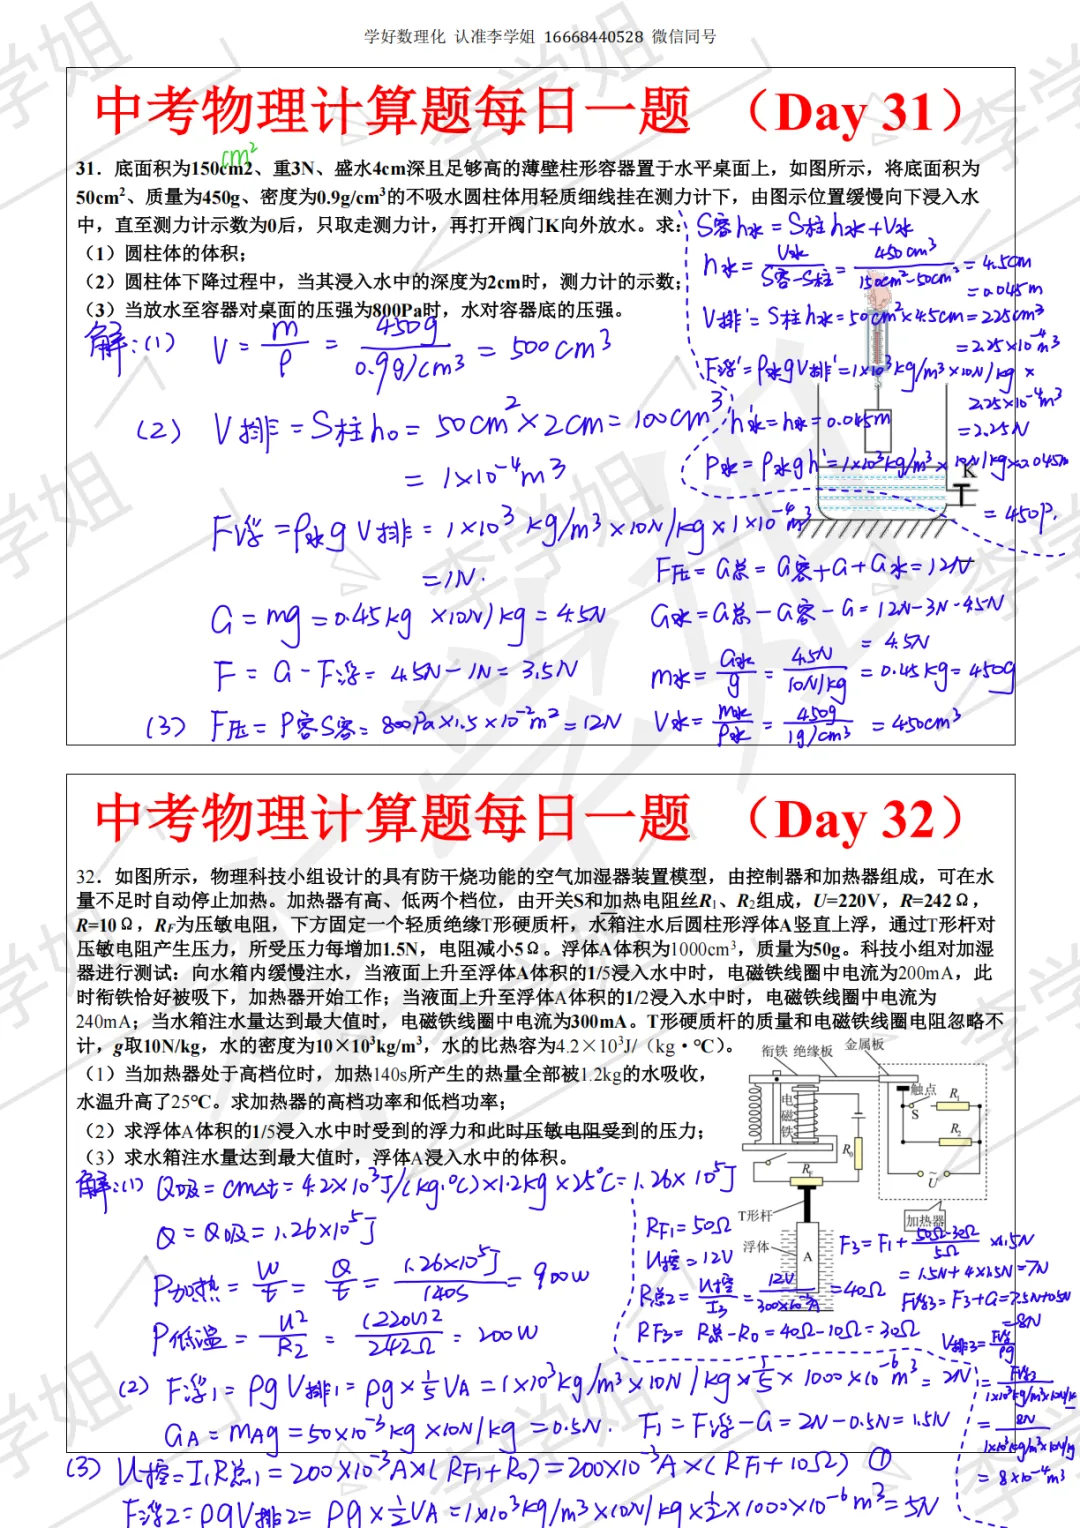 学好数理化 认准李学姐 16668440528 微信同号
中考物理计算题每日一题 （Day 31）
cm²
31．底面积为150cm2、重3N、盛水4cm深且足够高的薄壁柱形容器置于水平桌面上，如图所示，将底面积为
50cm²、质量为450g、密度为0.9g/cm³的不吸水圆柱体用轻质细线挂在测力计下，由图示位置缓慢向下浸入水
中，直至测力计示数为0后，只取走测力计，再打开阀门K向外放水。求：
（1）圆柱体的体积；
（2）圆柱体下降过程中，当其浸入水中的深度为2cm时，测力计的示数；
（3）当放水至容器对桌面的压强为800Pa时，水对容器底的压强。
解：(1) V = m/ρ = 450g/0.9g/cm³ = 500cm³
(2) V排 = S柱h₀ = 50cm² × 2cm = 100cm³
= 1×10⁻⁴m³
F浮 = ρ水gV排 = 1×10³kg/m³×10N/kg×1×10⁻⁴m³
= 1N.
G = mg = 0.45kg ×10N/kg = 4.5N
F = G - F浮 = 4.5N - 1N = 3.5N
(3) F压 = P容S容 = 800Pa×1.5×10⁻²m² = 12N
F压 = G总 = G容+G+G水 = 12N
G水 = G总 - G容 - G = 12N-3N-4.5N
= 4.5N
m水 = G水/g = 4.5N/10N/kg = 0.45kg = 450g
V水 = m水/ρ水 = 450g/1g/cm³ = 450cm³
S容h水 = S柱h水+V水
h水 = V水/S容-S柱 = 450cm³/150cm²-50cm² = 4.5cm
= 0.045m
V排' = S柱h水 = 50cm²×4.5cm = 225cm³
= 2.25×10⁻⁴m³
F浮' = ρ水gV排' = 1×10³kg/m³×10N/kg×
2.25×10⁻⁴m³
= 2.25N
h水' = h水 = 0.045m
P水 = ρ水gh' = 1×10³kg/m³×10N/kg×0.045m
= 450P.
K
中考物理计算题每日一题 （Day 32）
32．如图所示，物理科技小组设计的具有防干烧功能的空气加湿器装置模型，由控制器和加热器组成，可在水
量不足时自动停止加热。加热器有高、低两个档位，由开关S和加热电阻丝R₁、R₂组成，U=220V，R=242Ω，
R=10Ω，R_F为压敏电阻，下方固定一个轻质绝缘T形硬质杆，水箱注水后圆柱形浮体A竖直上浮，通过T形杆对
压敏电阻产生压力，所受压力每增加1.5N，电阻减小5Ω。浮体A体积为1000cm³，质量为50g。科技小组对加湿
器进行测试：向水箱内缓慢注水，当液面上升至浮体A体积的1/5浸入水中时，电磁铁线圈中电流为200mA，此
时衔铁恰好被吸下，加热器开始工作；当液面上升至浮体A体积的1/2浸入水中时，电磁铁线圈中电流为
240mA；当水箱注水量达到最大值时，电磁铁线圈中电流为300mA。T形硬质杆的质量和电磁铁线圈电阻忽略不
计，g取10N/kg，水的密度为10×10³kg/m³，水的比热容为4.2×10³J/（kg·℃）。
（1）当加热器处于高档位时，加热140s所产生的热量全部被1.2kg的水吸收，
水温升高了25℃。求加热器的高档功率和低档功率；
（2）求浮体A体积的1/5浸入水中时受到的浮力和此时压敏电阻受到的压力；
（3）求水箱注水量达到最大值时，浮体A浸入水中的体积。
衔铁 绝缘板 金属板
电磁铁
触点
S
R₁
R₂
R₀
R_F
~
U
T形杆
加热器
浮体
A
解：(1) Q吸 = cmΔt = 4.2×10³J/(kg·℃)×1.2kg×25℃ = 1.26×10⁵J
Q = Q吸 = 1.26×10⁵J
P加热 = W/t = Q/t = 1.26×10⁵J/140s = 900W
P低温 = U²/R₂ = (220V)²/242Ω = 200W
(2) F浮₁ = ρgV排₁ = ρg×1/5VA = 1×10³kg/m³×10N/kg×1/5×1000×10⁻⁶m³ = 2N
GA = mAg = 50×10⁻³kg×10N/kg = 0.5N. F₁ = F浮-G = 2N-0.5N = 1.5N
(3) U控 = I₁R总₁ = 200×10⁻³A×(RF₁+R₀) = 200×10⁻³A×(RF₁+10Ω) ①
F浮2 = ρgV排2 = ρg×1/2VA = 1×10³kg/m³×10N/kg×1/2×1000×10⁻⁶m³ = 5N
RF₁ = 50Ω
U控 = 12V
R总2 = U控/I₃ = 12V/300×10⁻³A = 40Ω
RF₃ = R总-R₀ = 40Ω-10Ω = 30Ω
F₃ = F₁ + 50Ω-30Ω/5Ω ×1.5N
= 1.5N+4×1.5N = 7N
F浮3 = F₃+G = 7.5N+0.5N
= 8N
V排3 = F浮/ρg
= F浮3/1×10³kg/m³×10N/kg
= 8N/1×10³kg/m³×10N/kg
= 8×10⁻⁴m³